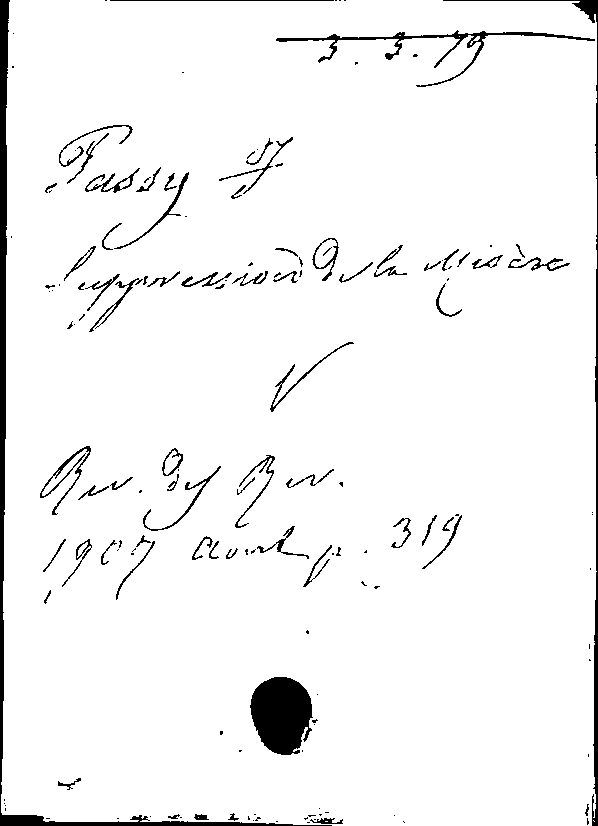 3. 3. 79
Passy
Suppression de la Misère
V
Rev. des Rev.
1907 Aout p. 319